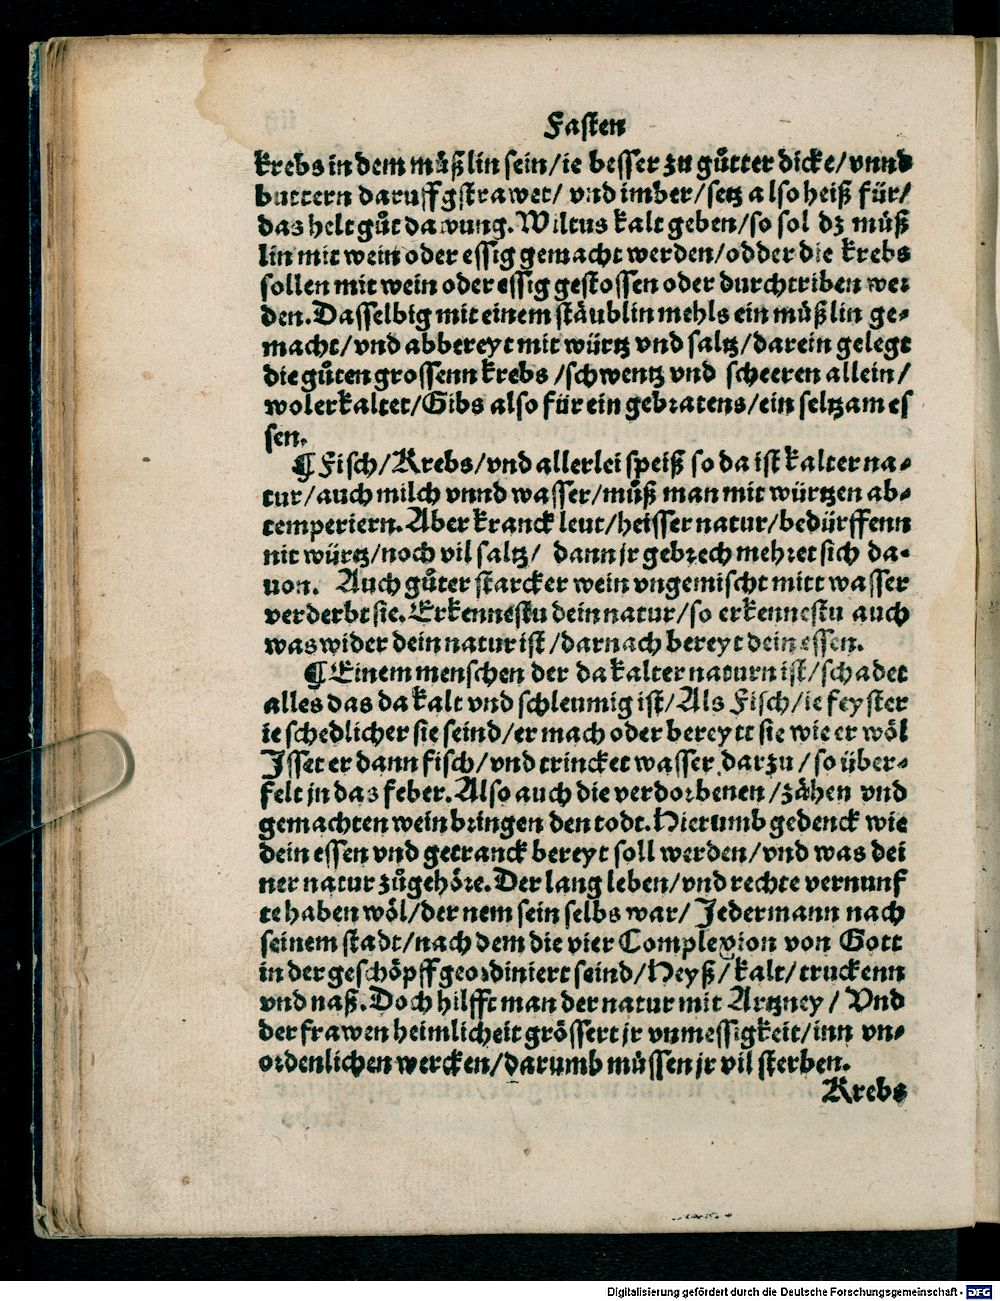 Fasten
krebs in dem müßlin sein/ie besser zu gůtter dicke/vnnd
buttern daruff gstrawet/ vnd imber/setz also heiß für/
das helt gůt dawung. Wiltus kalt geben/so sol dz müß
lin mit wein oder essig gemacht werden/odder die krebs
sollen mit wein oder essig gestossen oder durchtriben wer
den. Dasselbig mit einem stäublin mehls ein müßlin ge⸗
macht/vnd abbereyt mit würtz vnd saltz/darein gelegt
die gůten grossenn krebs /schwentz vnd scheeren allein/
wol erkaltet/Gibs also für ein gebratens/ein seltzam es
sen.
¶ Fisch/Krebs/vnd allerlei speiß so da ist kalter na⸗
tur/auch milch vnnd wasser/můß man mit würtzen ab⸗
temperiern. Aber kranck leut/heisser natur/bedürffenn
nit würtz/noch vil saltz/ dann jr gebrech mehret sich da⸗
uon. Auch gůter starcker wein vngemischt mitt wasser
verderbt sie. Erkennestu dein natur/so erkennestu auch
was wider dein natur ist/darnach bereyt dein essen.
¶ Einem menschen der da kalter naturn ist/schadet
alles das da kalt vnd schleumig ist/Als Fisch/ie feyster
ie schedlicher sie seind/er mach oder bereytt sie wie er wöl
Jsset er dann fisch/vnd trincket wasser darzu/so über⸗
felt jn das feber. Also auch die verdorbenen/zähen vnd
gemachten wein bringen den todt. Hierumb gedenck wie
dein essen vnd getranck bereyt soll werden/vnd was dei
ner natur zůgehöre. Der lang leben/vnd rechte vernunf
te haben wöl/der nem sein selbs war/ Jedermann nach
seinem stadt/nach dem die vier Complexion von Gott
in der geschöpff geordiniert seind/Heyß/kalt/truckenn
vnd naß. Doch hilfft man der natur mit Artzney/ Vnd
der frawen heimlicheit grössert jr vnmessigkeit/inn vn⸗
ordenlichen wercken/darumb müssen jr vil sterben.
Krebs
Digitalisierung gefördert durch die Deutsche Forschungsgemeinschaft - DFG